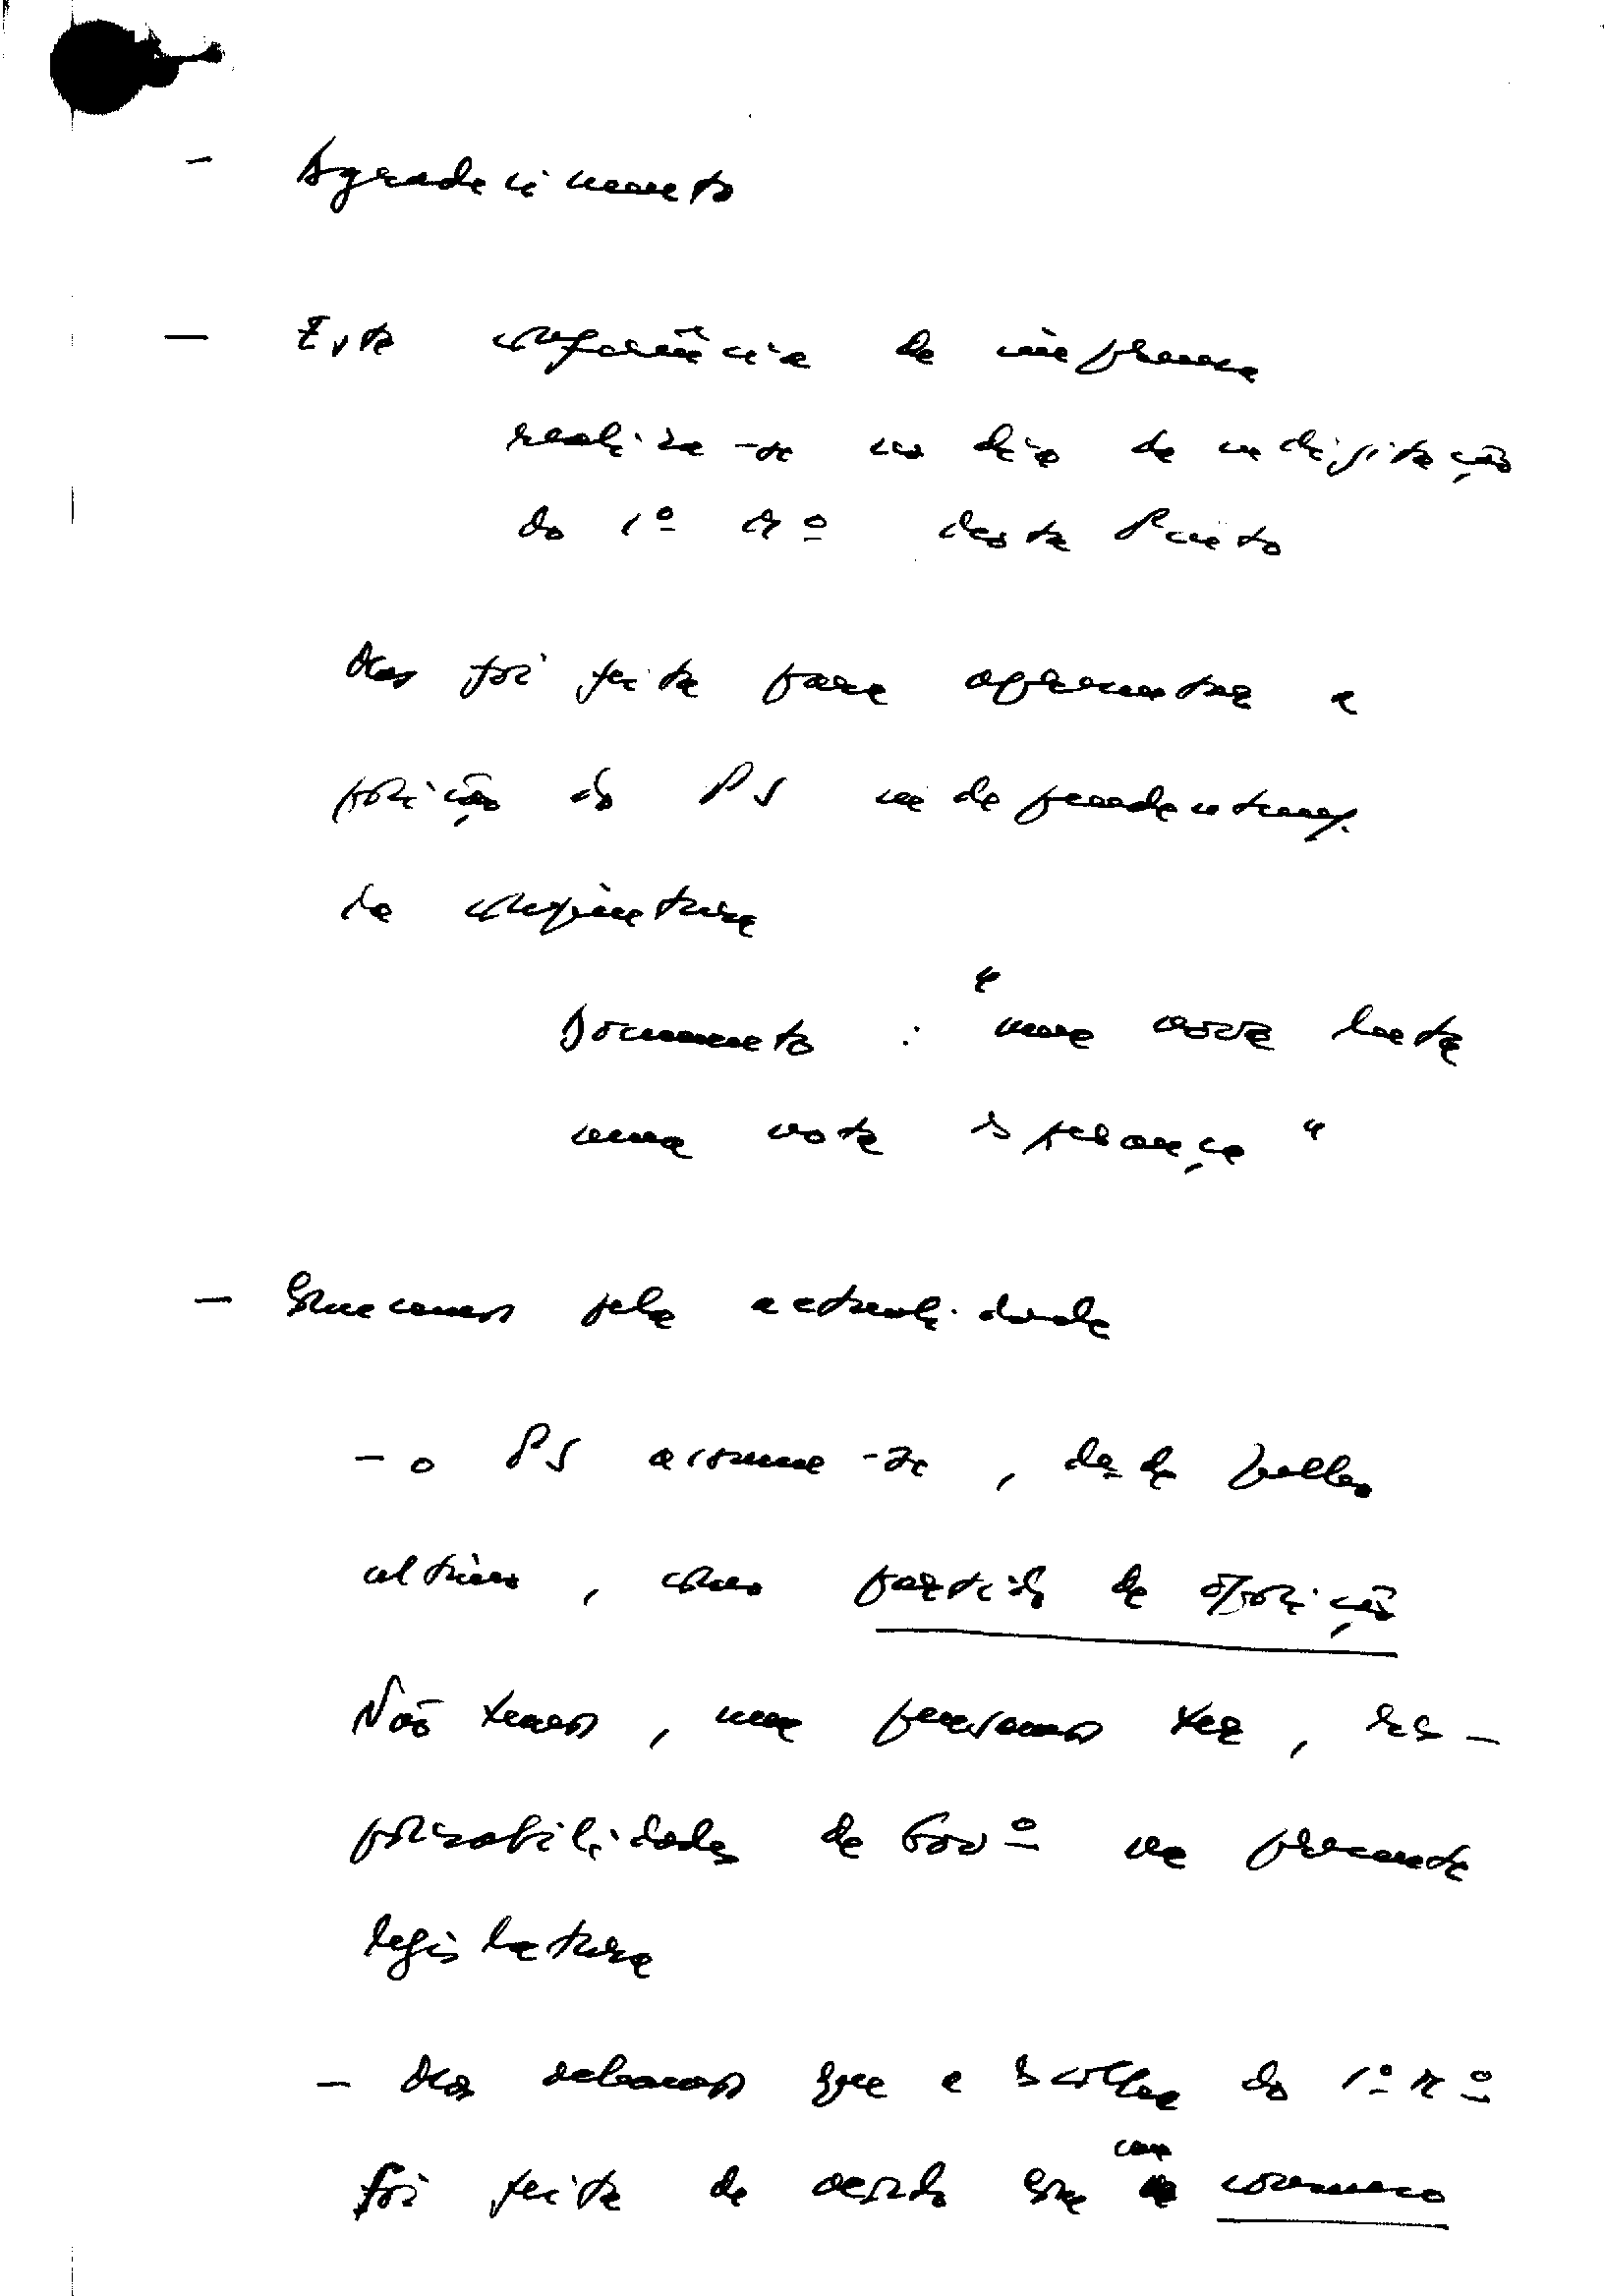 - Agradecimento
- Esta conferência de imprensa
realiza-se no dia de indigitação
do 1º Mº deste Pinto
Mas foi feita para apresentar a
posição do PS independentem.
da conjuntura
Documento : "uma nova luta
uma nota esperança"
- Comecemos pela actualidade
- o PS assume-se, desde Julho
ultimo, como partido de oposição
Não temos, nem pensamos ter, res-
ponsabilidades de Govº na presente
legislatura
- Mas achamos que a escolha do 1º Mº
foi feita de acordo com